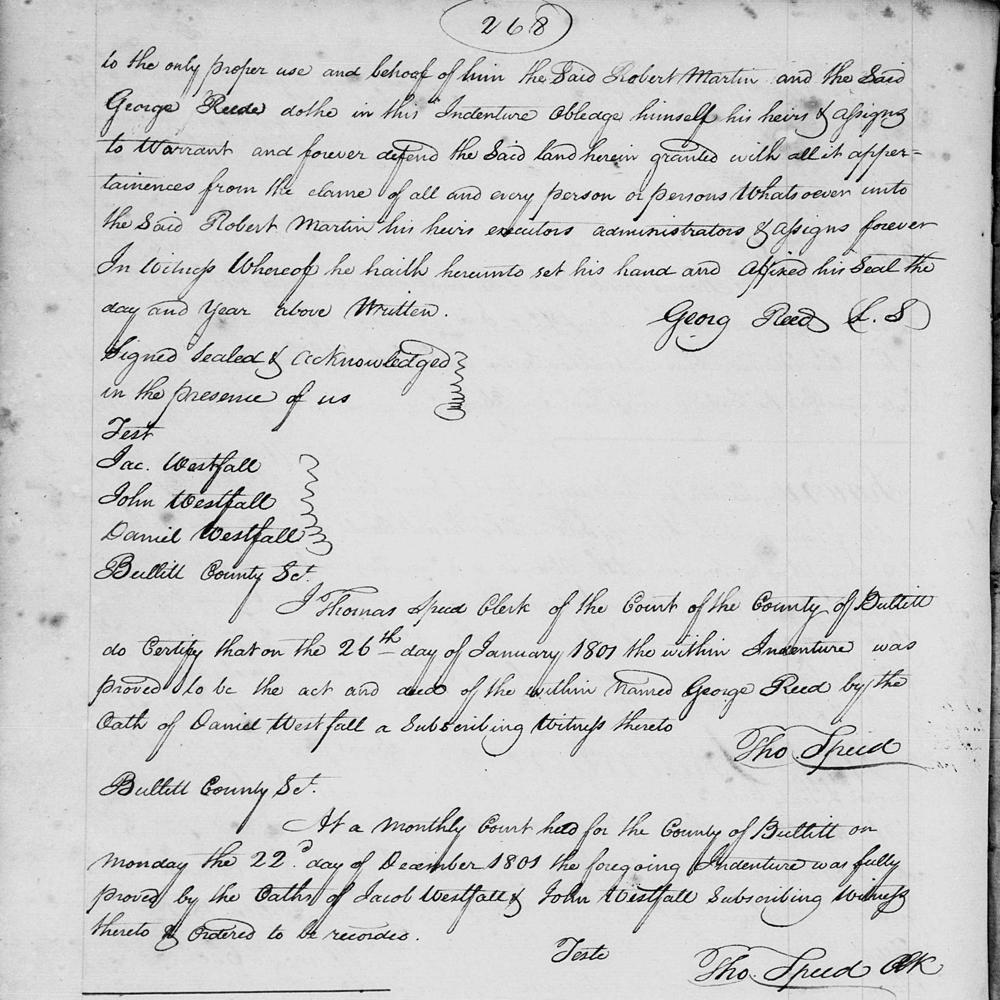 268
to the only proper use and behoof of him the Said Robert Martin and the Said
George Reede dothe in this Indenture Obledge himself his heirs & assigns
to Warrant and forever defend the Said land herein granted with all it apper-
tainences from the clame of all and every person or persons Whatsoever unto
the Said Robert Martin his heirs executors administrators & assigns forever
In Witness Whereof he haith hereunto set his hand and Affixed his Seal the
day and Year Above Written.
Georg Reed (L. S)
Signed Sealed & acknowledged
in the presence of us
Test
Jac. Westfall
John Westfall
Daniel Westfall
Bullitt County Sct.
I Thomas Speed Clerk of the Court of the County of Bullitt
do Certify that on the 26th day of January 1801 the within Indenture was
proved to be the act and deed of the within Named George Reed by the
Oath of Daniel Westfall a Subscribing Witness thereto
Tho Speed
Bullitt County Sct.
At a Monthly Court held for the County of Bullitt on
Monday the 22d. day of December 1801 the foregoing Indenture was fully
proved by the Oaths of Jacob Westfall & John Westfall Subscribing Witness
thereto & Ordered to be recorded.
Teste
Tho. Speed Clk